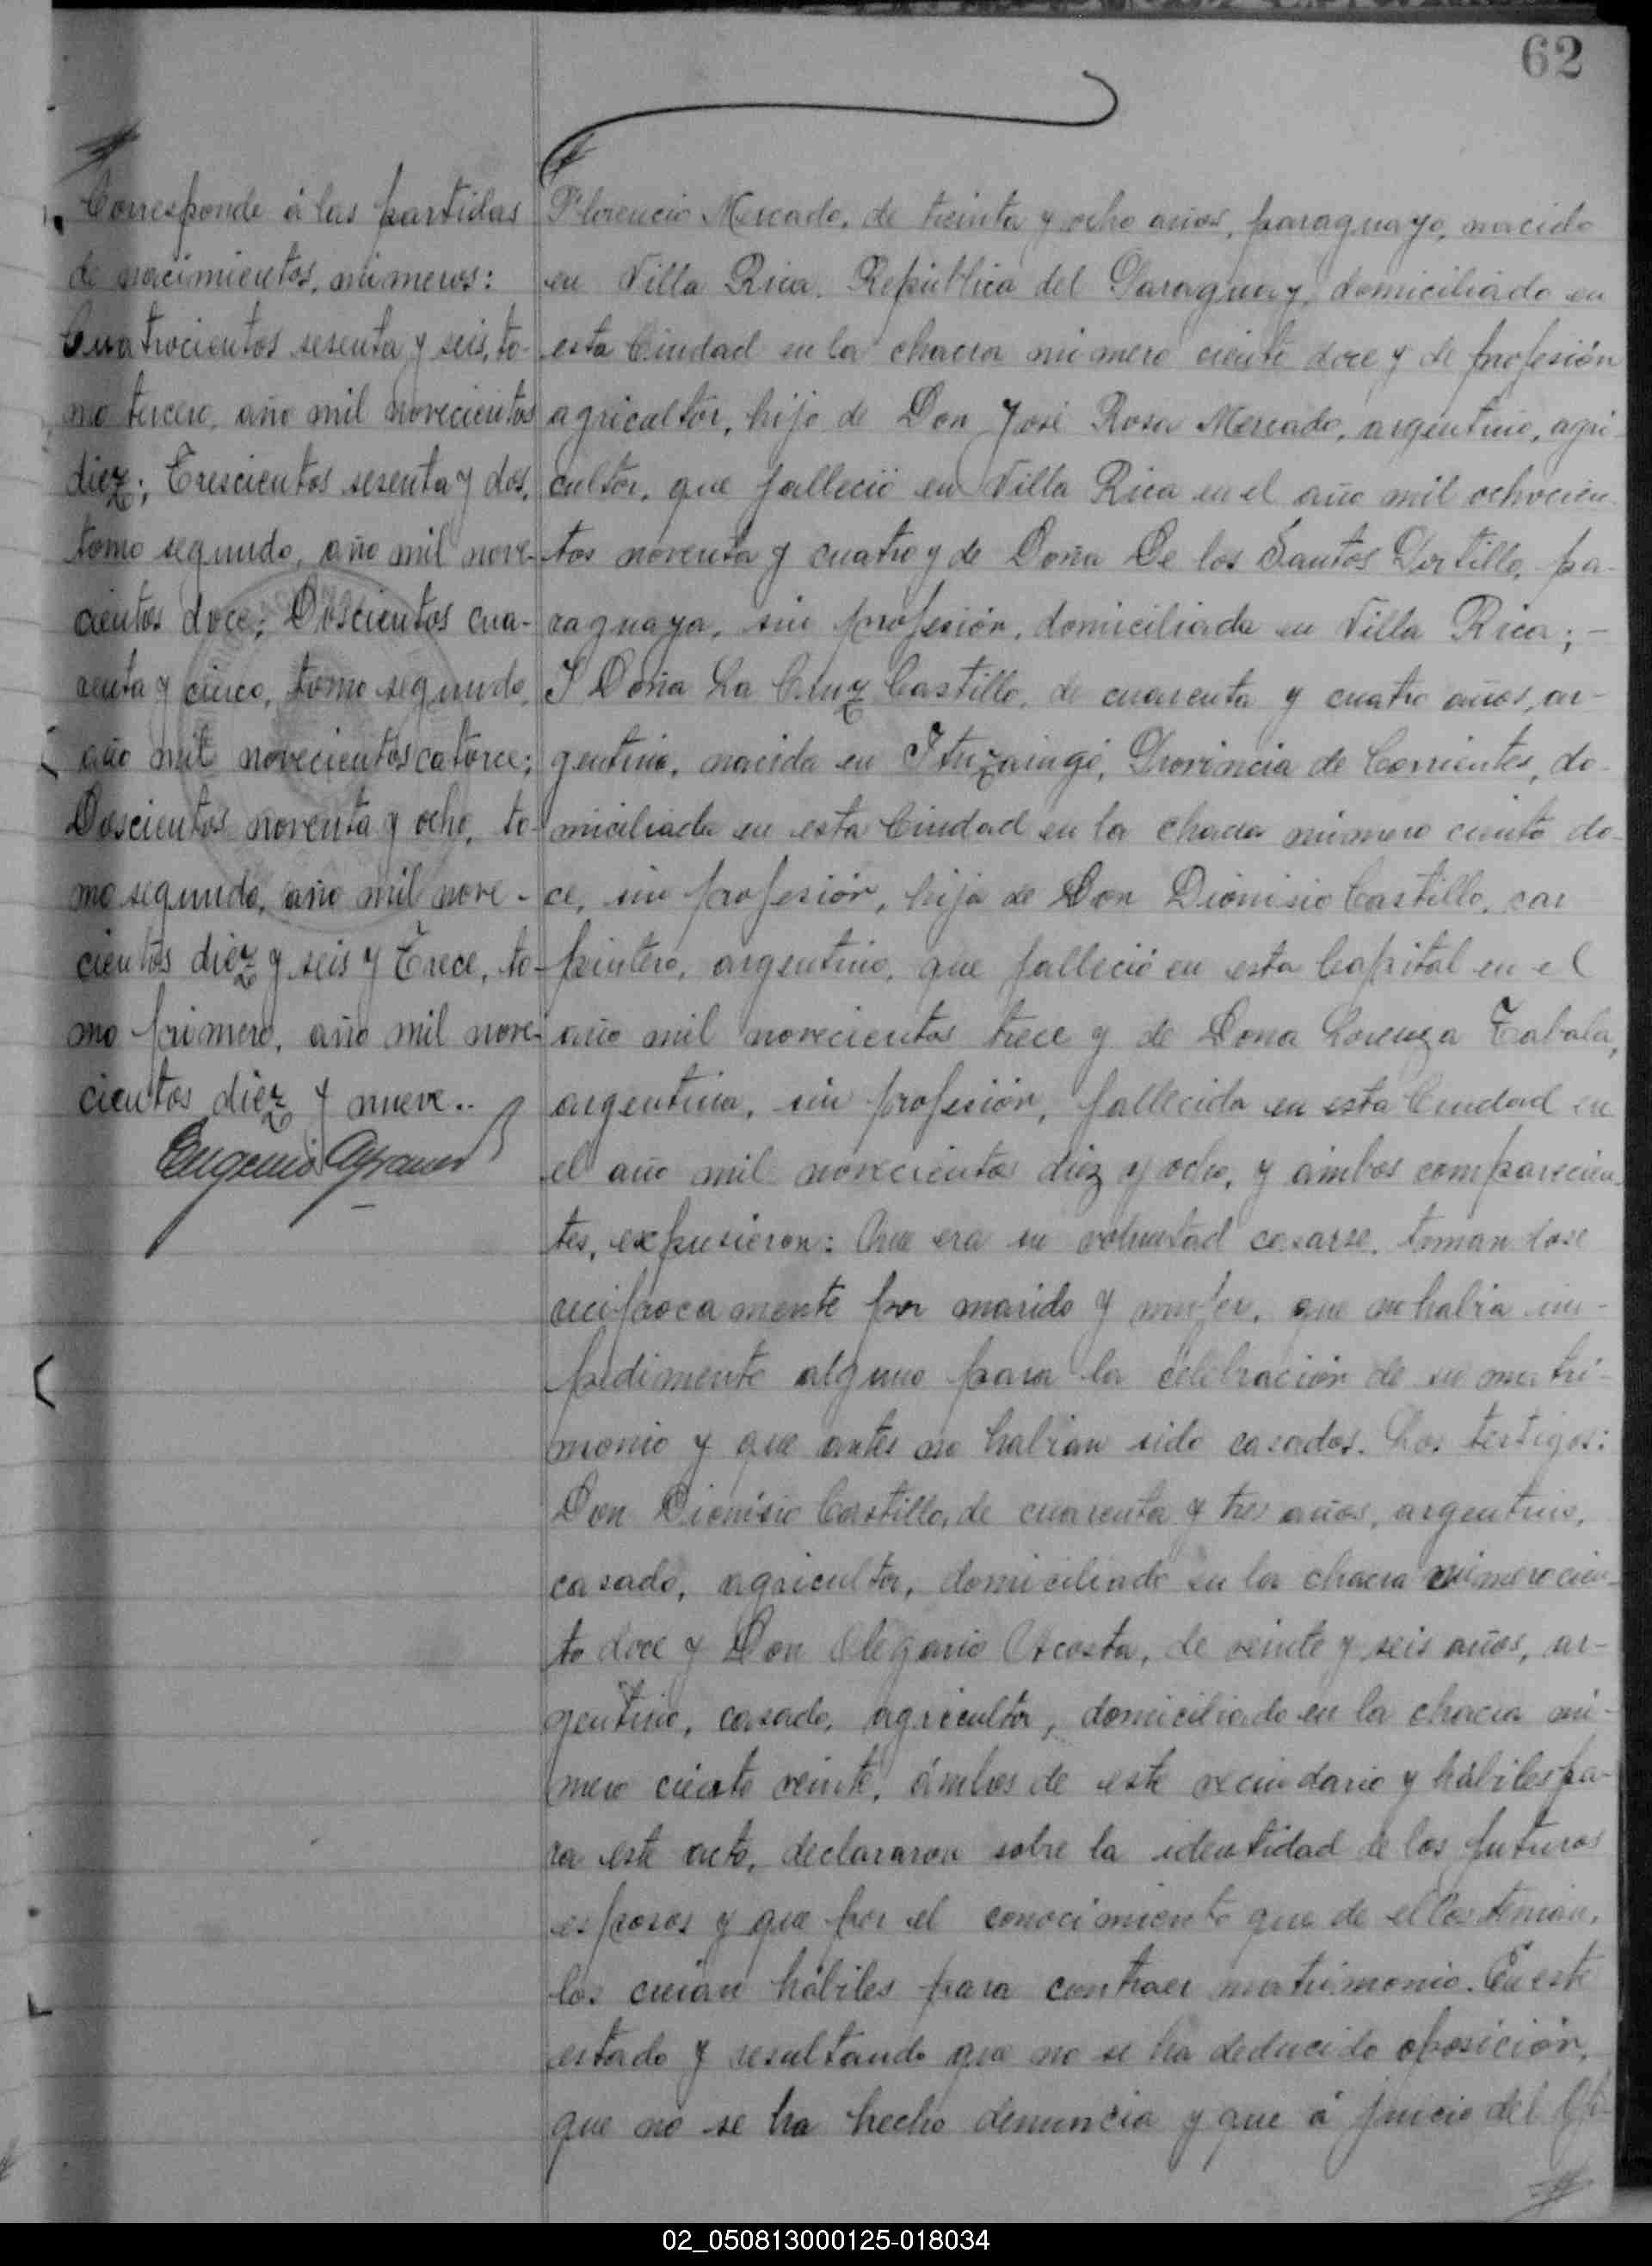 62
Corresponde á las partidas
de nacimientos, números:
Cuatrocientos sesenta y seis, to-
mo tercero, año mil novecientos
diez; Trescientos sesenta y dos,
tomo segundo, año mil nove-
cientos doce; Doscientos cua-
renta y cinco, tomo segundo,
año mil novecientos catorce;
Doscientos noventa y ocho, to-
mo segundo, año mil nove-
cientos diez y seis y Trece, to-
mo primero, año mil nove-
cientos diez y nueve..
Eugenio
Florencio Mercado, de treinta y ocho años, paraguayo, nacido
en Villa Rica, República del Paraguay, domiciliado en
esta Ciudad en la chacra número ciento doce y de profesión
agricultor, hijo de Don José Rosa Mercado, argentino, agri-
cultor, que falleció en Villa Rica en el año mil ochocien-
tos noventa y cuatro y de Doña De los Santos Portillo, pa-
raguaya, sin profesión, domiciliada en Villa Rica; -
Y Doña La Cruz Castillo, de cuarenta y cuatro años, ar-
gentina, nacida en Ituzaingó, Provincia de Corrientes, do-
miciliada en esta Ciudad en la chacra número ciento do-
ce, sin profesión, hija de Don Dionisio Castillo, car
pintero, argentino, que falleció en esta Capital en el
año mil novecientos trece y de Dona Lorenza Tabala,
argentina, sin profesión, fallecida en esta Ciudad en
el año mil novecientos diez y ocho, y ámbos comparecien-
tes, expusieron: Que era su voluntad casarse, tomandose
recíprocamente por marido y mujer, que no habia im-
pedimento alguno para la celebración de su matri-
monio y que antes no habían sido casados. Los testigos:
Don Dionisio Castillo, de cuarenta y tres años, argentino,
casado, agricultor, domiciliado en la chacra número cien-
to doce y Don Olegario Acosta, de veinte y seis años, ar-
gentino, casado, agricultor, domiciliado en la chacra nú-
mero ciento veinte, ámbos de este vecindario y hábiles pa-
ra este acto, declararon sobre la identidad de los futuros
esposos y que por el conocimiento que de ellos tenian,
los creían hábiles para contraer matrimonio. En este
estado y resultando que no se ha deducido oposición,
que no se ha hecho denuncia y que á juicio del Ofi-
02_050813000125-018034